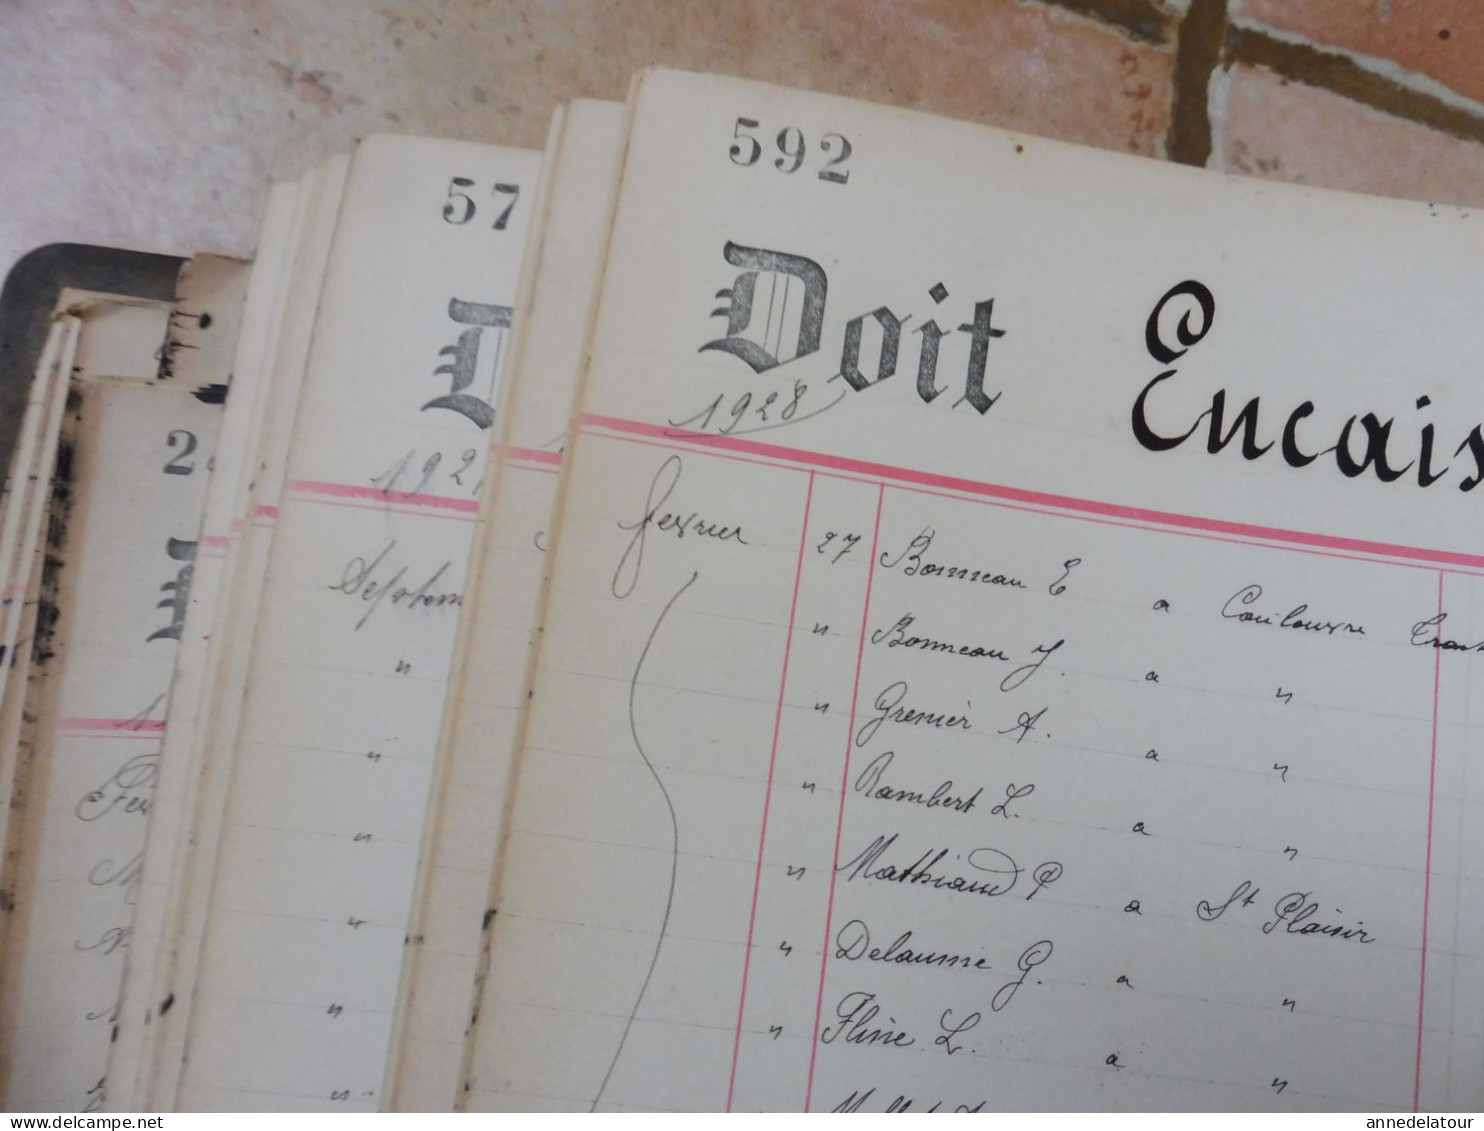 592
Doit Encais
1928
fevrier 27 Bonneau E a Couleuvre Trait
" Bonneau J. a "
" Grenier A. a "
" Rambert L. a "
" Mathiaud P a St Plaisir
" Delaume G. a "
" Fline L. a "
57
D
192
Septem
"
"
"
"
"
"
2
Fev
annedelatour